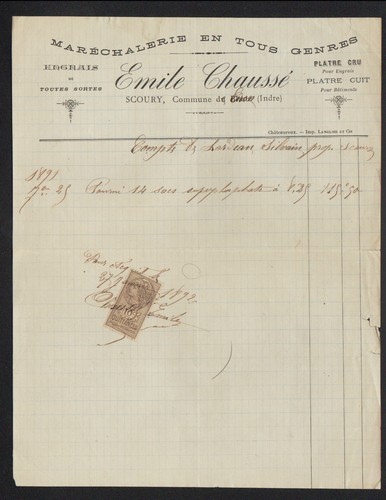 MARÉCHALERIE EN TOUS GENRES
ENGRAIS
DE
TOUTES SORTES
Emile Chaussé
SCOURY, Commune de Ciron (Indre)
PLATRE CRU
Pour Engrais
PLATRE CUIT
Pour Bâtiments
Châteauroux. — Imp. Langlois et Cie
Compte de Lardeau Silvain, prop. Scoury
1891
9re 25 Fourni 14 sacs superphosphate à 8.25 115.50
Pour acquit le
27 1892
Chaussé Emile